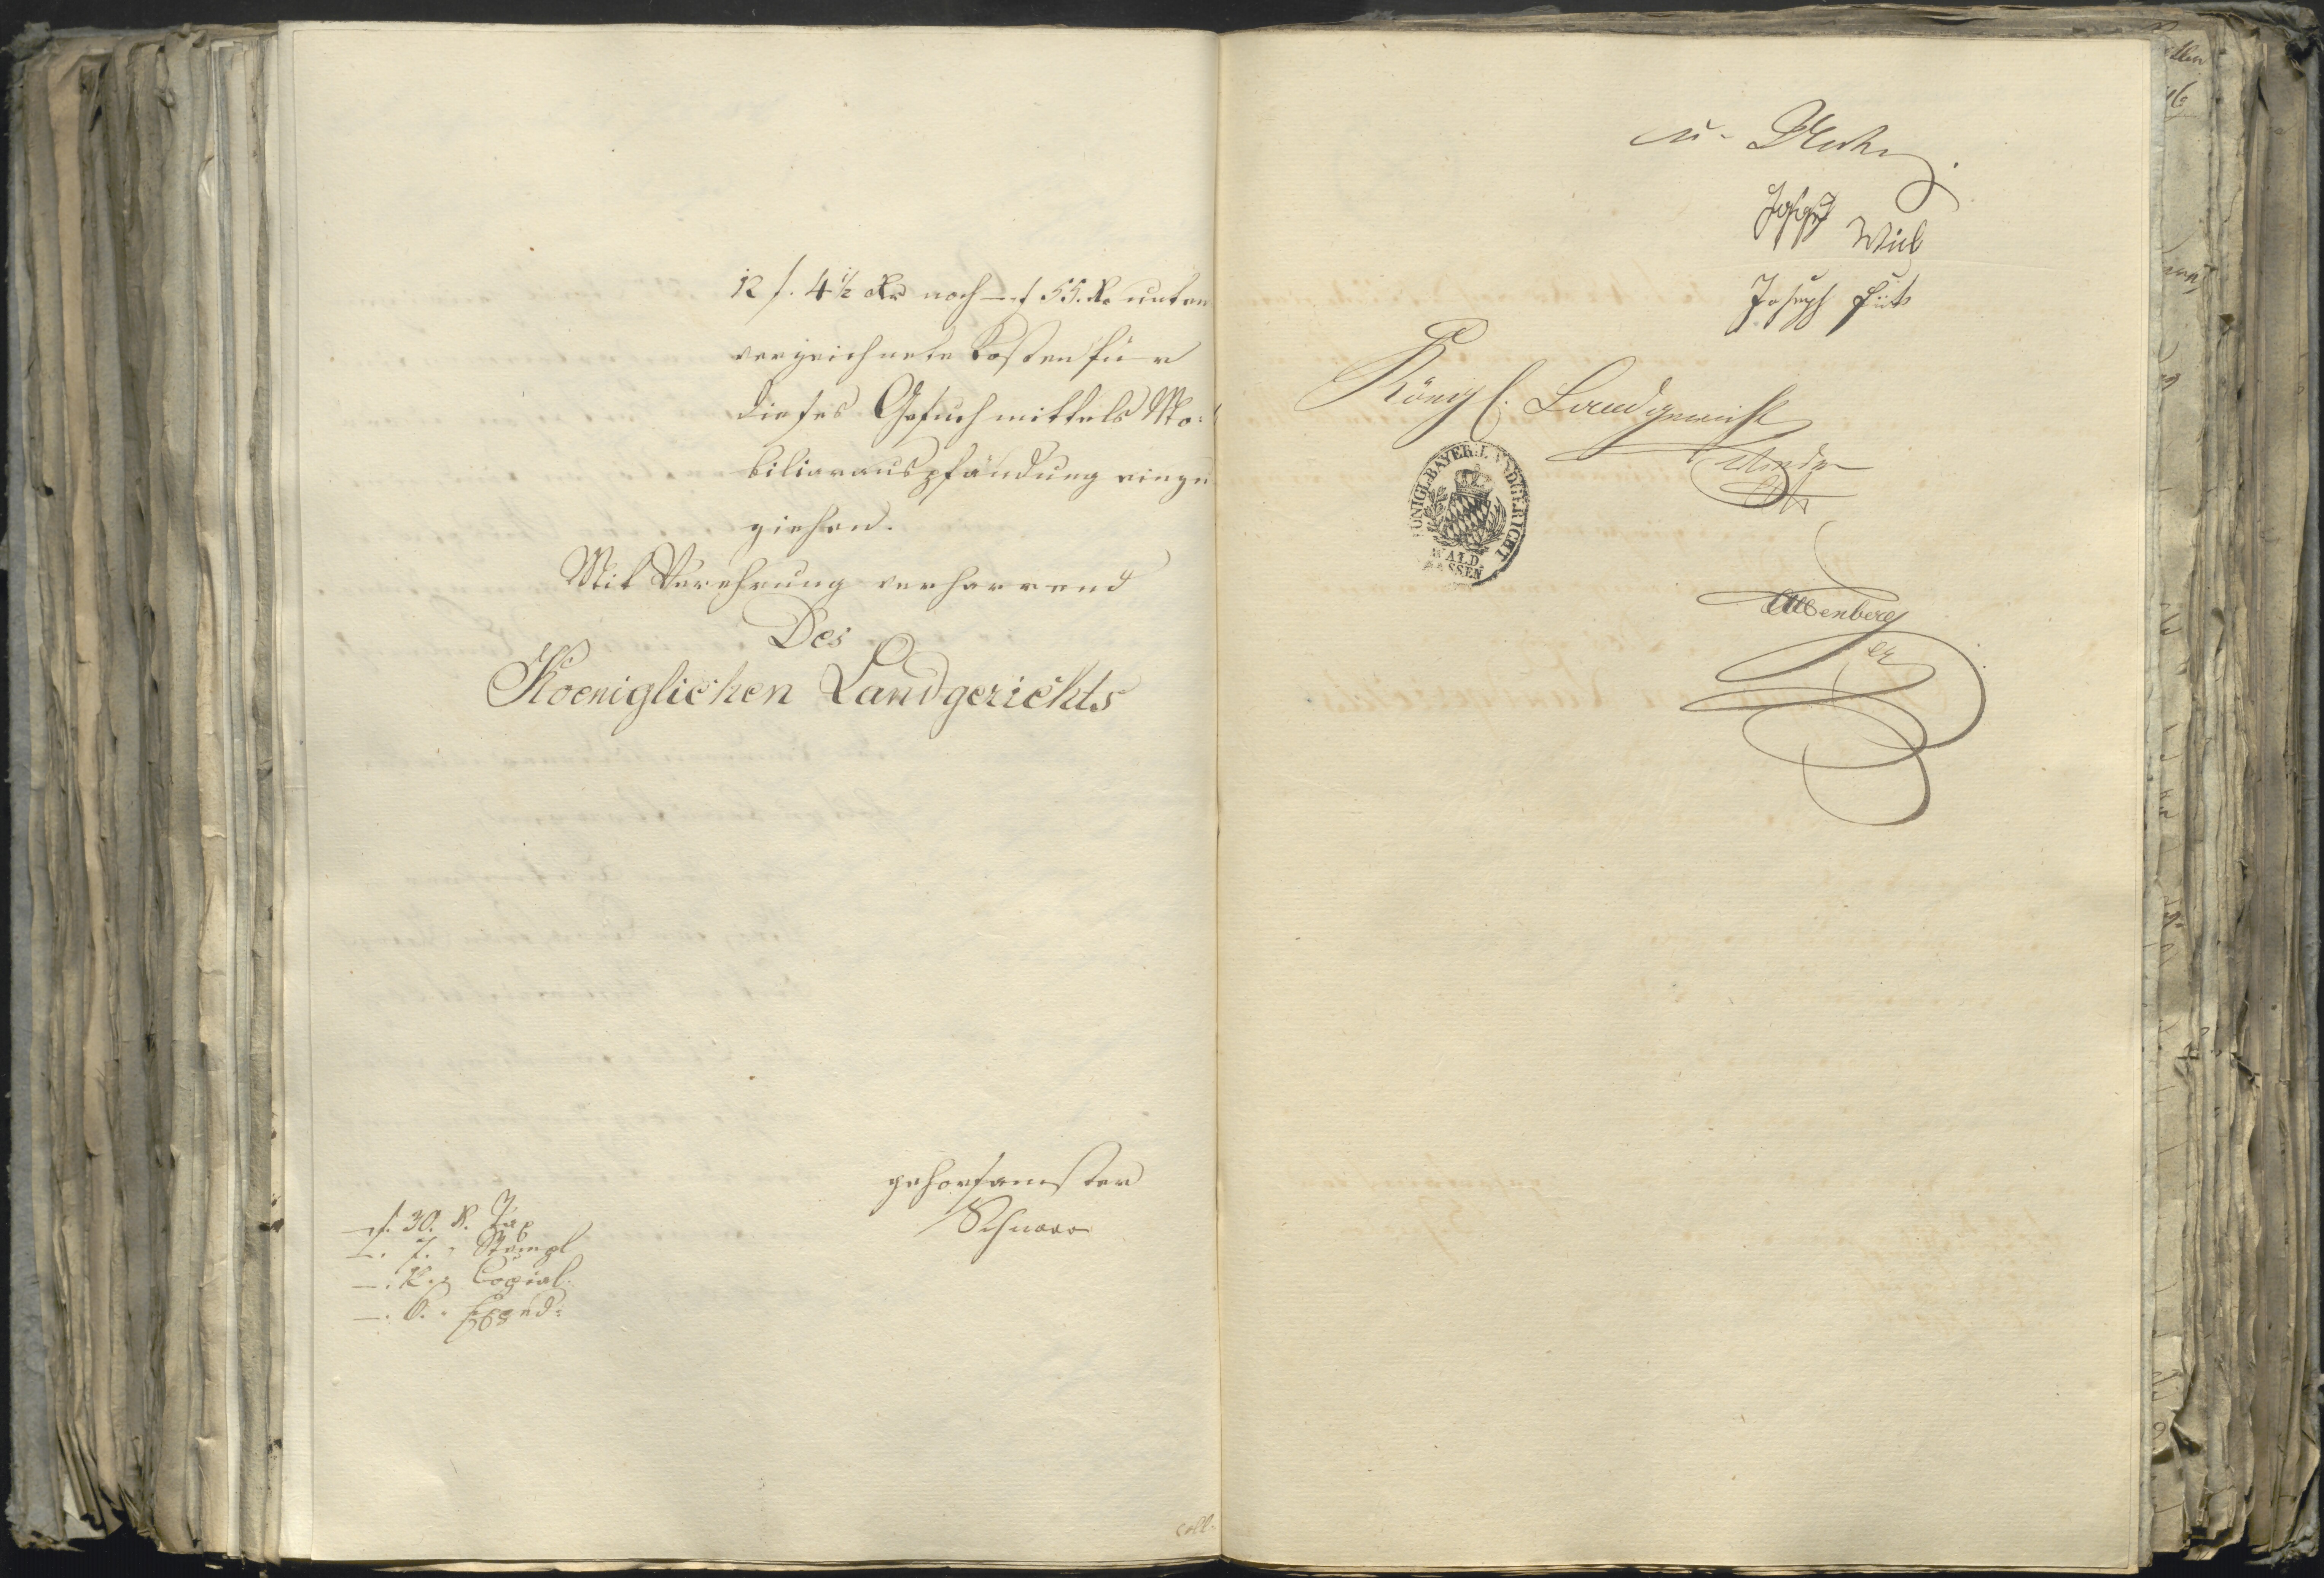 12 f. 4 1/2 Kr noch – f 55. Kr unten
verzeichnete Kosten für
dieses Gesuch mittels Mo:
biliarauspfändung einzu
ziehen.
Mit Verehrung verharrend
Des
Koeniglichen Landgerichts
gehorsamster
– f. 30. K. Tax
–. 7. " Stempl
–. 12. " Copial.
–. 6. " Expd:
coll:
Joseph
Joseph
Königl. Landgericht
KÖNIGL. BAYER. LANDGERICHT
WALD
SASSEN